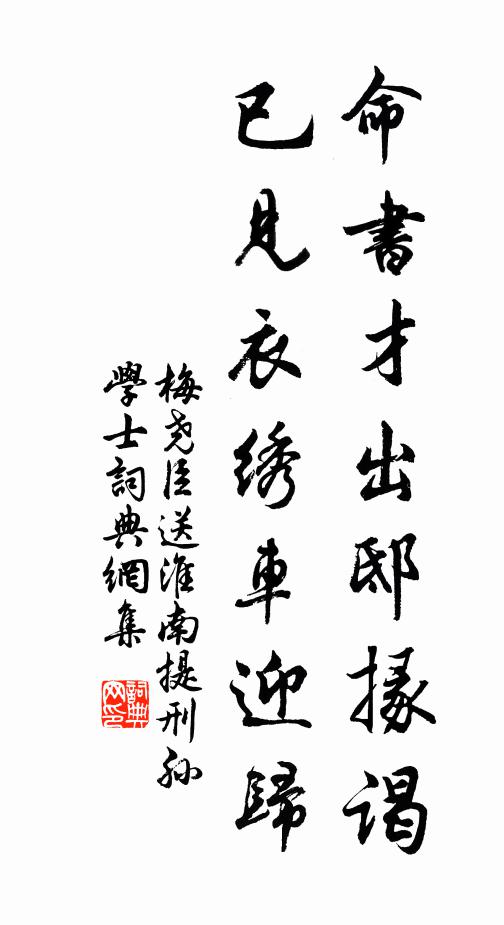 命書才出邸掾谒
已見衣绣車迎歸
梅尧臣送淮南提刑孙
學士詞典網集
詞典
网印